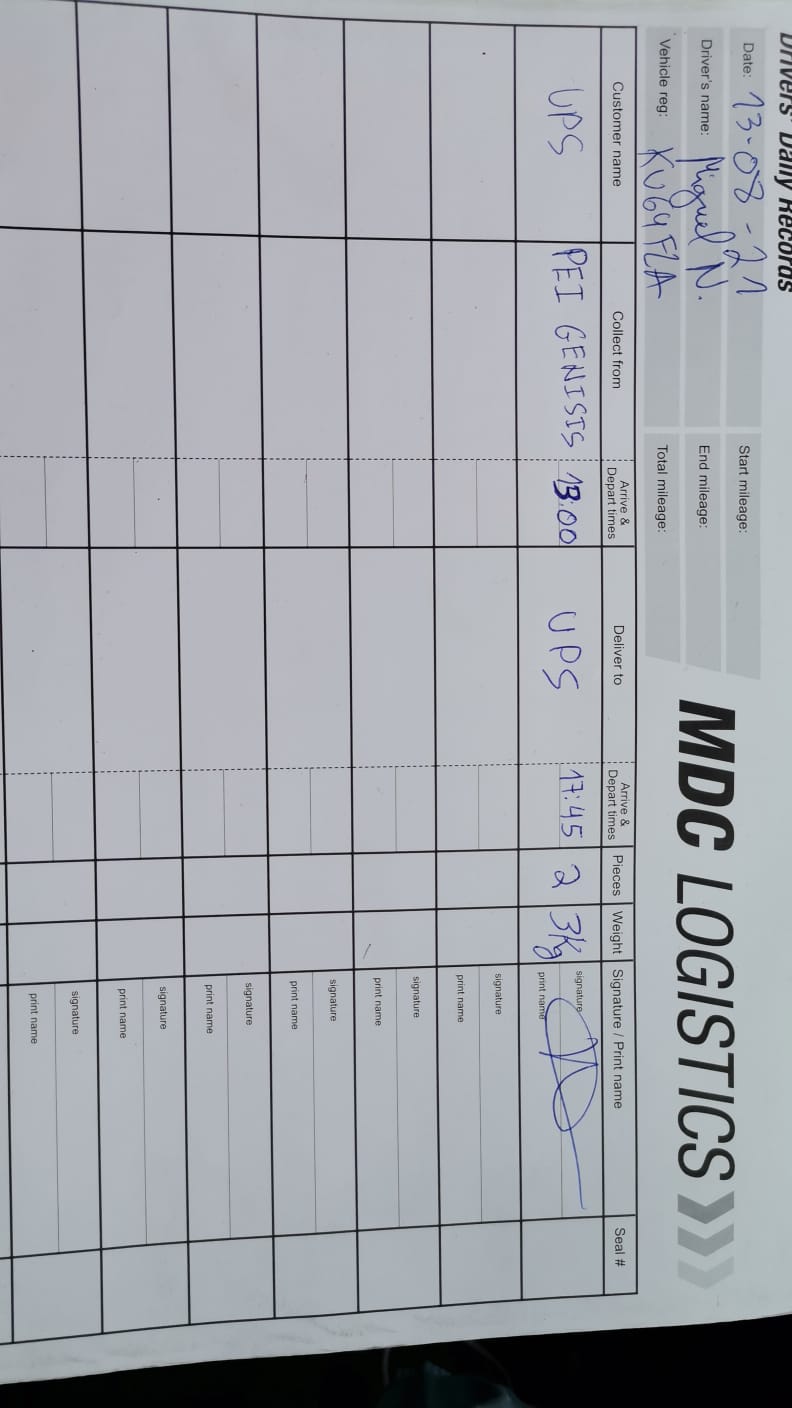 Drivers' Daily Records
Date: 13-08-21
Driver's name: Miguel N.
Vehicle reg: KV64FZA
Start mileage:
End mileage:
Total mileage:
MDC LOGISTICS
Customer name Collect from Arrive & Depart times Deliver to Arrive & Depart times Pieces Weight Signature / Print name Seal #
UPS PEI GENISIS 13:00 UPS 17:45 2 3Kg signature
print name
signature
print name
signature
print name
signature
print name
signature
print name
signature
print name
signature
print name